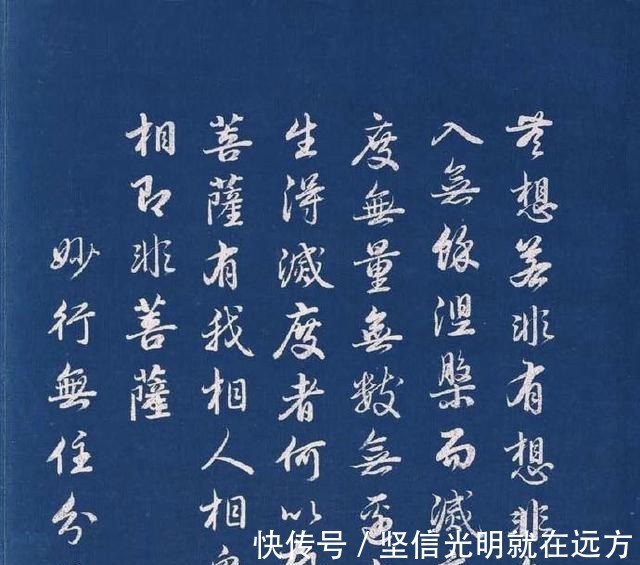 無想若非有想非
入無餘涅槃而滅
度無量無數無邊
生得滅度者何以故
菩薩有我相人相眾
相即非菩薩
妙行無住分
快传号 / 坚信光明就在远方